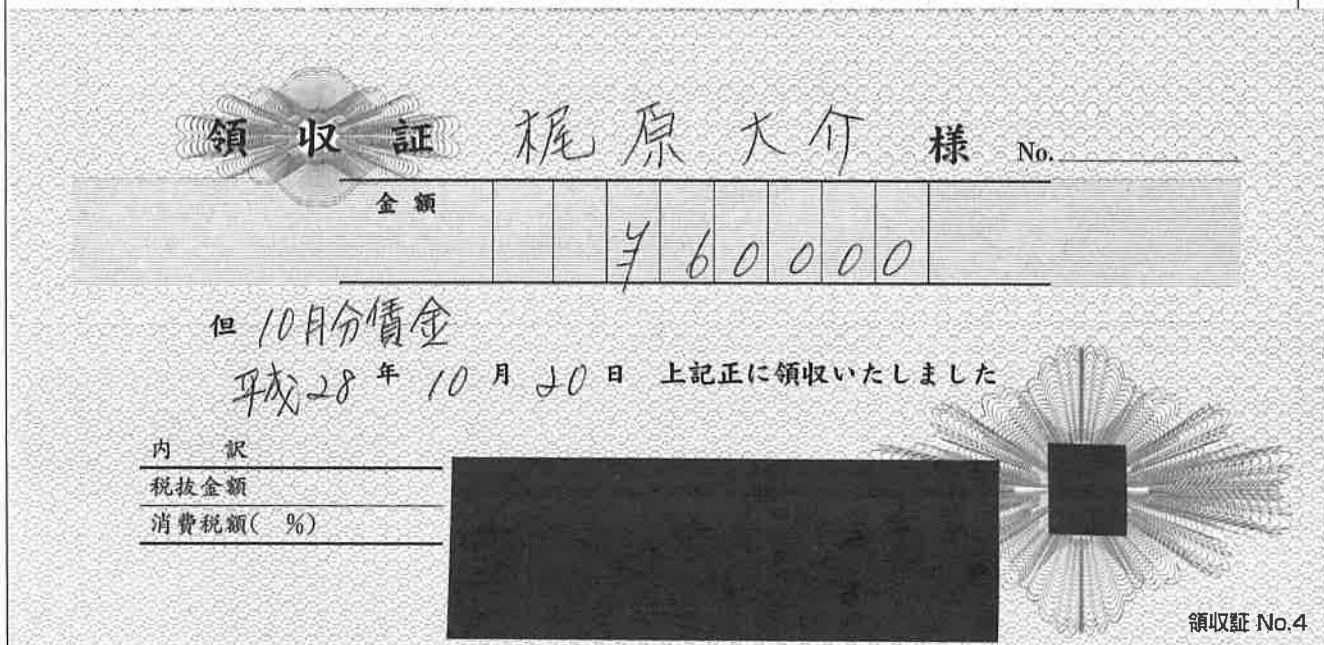 領収証 梶原大介 様 No.
金額 ¥60000
但 10月分賃金
平成28年10月20日 上記正に領収いたしました
内訳
税抜金額
消費税額( %)
領収証 No.4